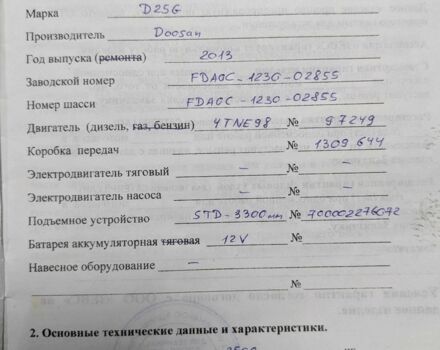 Марка D25G
Производитель Doosan
Год выпуска (ремонта) 2013
Заводской номер FDA0C-1230-02855
Номер шасси FDA0C-1230-02855
Двигатель (дизель, газ, бензин) 4TNE98 № 97249
Коробка передач № 1309 644
Электродвигатель тяговый – № –
Электродвигатель насоса – № –
Подъемное устройство STD-3300mm № 700002276072
Батарея аккумуляторная тяговая 12V №
Навесное оборудование –
№
2. Основные технические данные и характеристики.